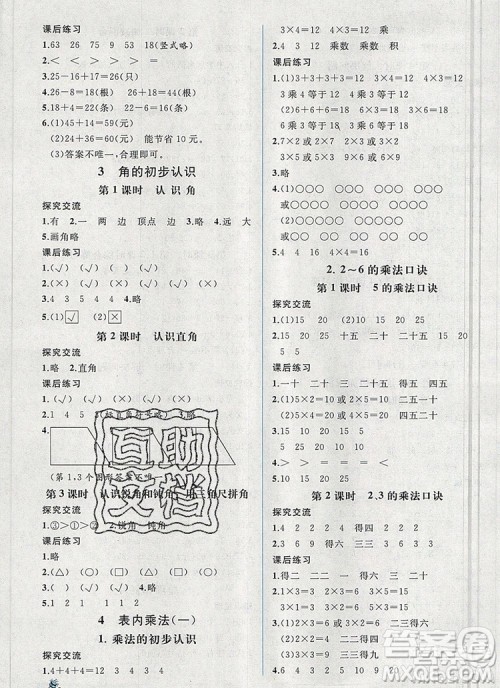 课后练习
1.63 26 75 9 53 18(竖式略)
2.< > < = > =
3.25-16+17=26(只)
4.26-8=18(根) 26+18=44(根)
5.18+4=22(条) 22-6=16(条)
6.(1)45+14=59(元)
(2)24+36=60(元) 能节省10元。
(3)答案不唯一,合理即可。
3 角的初步认识
第1课时 认识角
探究交流
1.有 2.一 两 边 顶点 边 3.略 4.远 大
5.画角略
课后练习
1.(√) ( ) (√) (√) ( ) (√)
2.(×) (√) (×) (×) (√) (×)
3.4 3 5 4 4.略
5.(1)√ (2)×
第2课时 认识直角
探究交流
1.略 2.直角
课后练习
1.(√) ( ) ( ) (√) ( )
2.1 4 5
4.
第3课时 认识锐角和钝角,用三角尺拼角
探究交流
1.③>①>② 2.锐角 钝角
课后练习
1.略
2.(△) (△) (□) (○) (□) (○)
3.略
5.1 2 1 1 1 2
4 表内乘法(一)
1.乘法的初步认识
探究交流
1.4+4+4=12 3 4 3 4
3×4=12 4×3=12
2.4 3 12 乘数 乘数 积
课后练习
1.(1)3+3+3+3=12 4×3=12
3乘4等于12 4乘3等于12
(2)6+6+6=18 3×6=18 6×3=18
3乘6等于18 6乘3等于18
2.× √ √ ×
3.略
4.(1)○○○ ○○○ ○○○ ○○○
(2)○○○○○ ○○○○○
(3)○○○○ ○○○○ ○○○○ ○○○○
5.4 4 16 4×4=16
2. 2~6的乘法口诀
第1课时 5的乘法口诀
探究交流
1.5 10 15 20 25
2.15 20 25 二十 二十五 三五 四五
3.15 15 20 20
课后练习
1.一十 二十 二五 二十五 得五 四五
2.(1)5×2=10或2×5=10 二五一十
(2)3×5=15或5×3=15 三五十五
3.10 15 20 20 25 5
4.= > < = > <
5.3×5=15(元)
第2课时 2、3的乘法口诀
探究交流
1.2 2 2 2 得二 得四 2.4 4
3.3 6 9 得三 得六 得九
课后练习
1.得二 二二 一三 得六 三三 二十
2.(1)2×2=4 二二得四
(2)3×2=6或2×3=6 二三得六
(3)3×3=9 三三得九